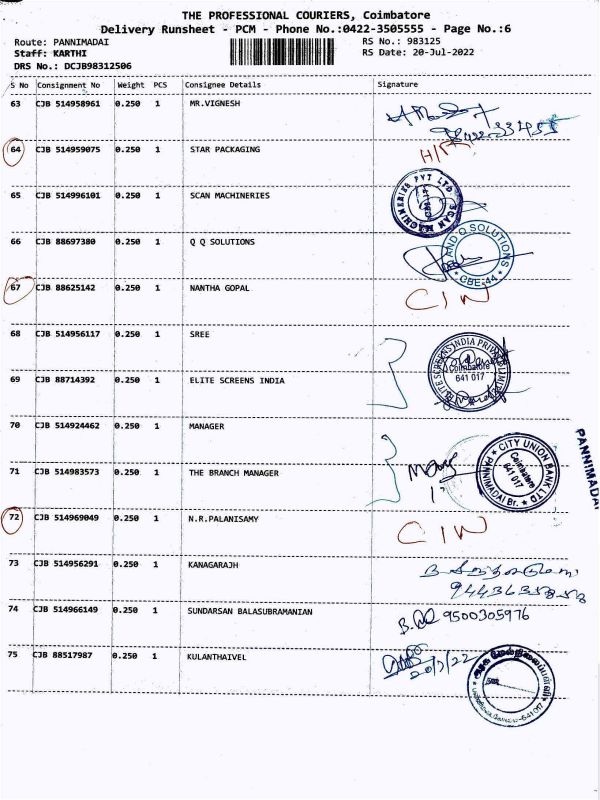 THE PROFESSIONAL COURIERS, Coimbatore
Delivery Runsheet - PCM - Phone No.:0422-3505555 - Page No.:6
Route: PANNIMADAI
RS No.: 983125
Staff: KARTHI
RS Date: 20-Jul-2022
DRS No.: DCJB98312506
S No Consignment No Weight PCS Consignee Details Signature
63 CJB 514958961 0.250 1 MR.VIGNESH
64 CJB 514959075 0.250 1 STAR PACKAGING
65 CJB 514996101 0.250 1 SCAN MACHINERIES
SCAN MACHINERIES PVT LTD
66 CJB 88697380 0.250 1 Q Q SOLUTIONS
AND Q SOLUTIONS
CBE-44
67 CJB 88625142 0.250 1 NANTHA GOPAL CIN
68 CJB 514956117 0.250 1 SREE
ELITE SCREENS INDIA PRIVATE LIMITED
Coimbatore
641 017
69 CJB 88714392 0.250 1 ELITE SCREENS INDIA
70 CJB 514924462 0.250 1 MANAGER
PANNIMADAI
CITY UNION BANK LTD
Coimbatore
641 017
PANNIMADAI Br.
71 CJB 514983573 0.250 1 THE BRANCH MANAGER
72 CJB 514969049 0.250 1 N.R.PALANISAMY CIN
73 CJB 514956291 0.250 1 KANAGARAJH
74 CJB 514966149 0.250 1 SUNDARSAN BALASUBRAMANIAN 9500305976
75 CJB 88517987 0.250 1 KULANTHAIVEL
20/7/22
641 017